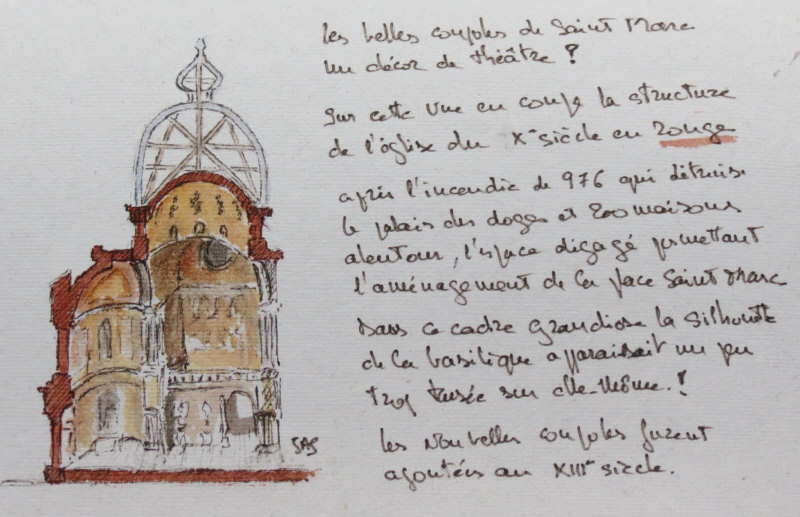 Les belles coupoles de Saint Marc
un décor de théâtre ?
Sur cette vue en coupe la structure
de l'église du Xe siècle en rouge
après l'incendie de 976 qui détruisit
le palais des doges et 200 maisons
alentour, l'espace dégagé permettant
l'aménagement de la place Saint Marc
Dans ce cadre grandiose la silhouette
de la basilique apparaissait un peu
trop tassée sur elle-même !
Les nouvelles coupoles furent
ajoutées au XIIIe siècle.
SAS